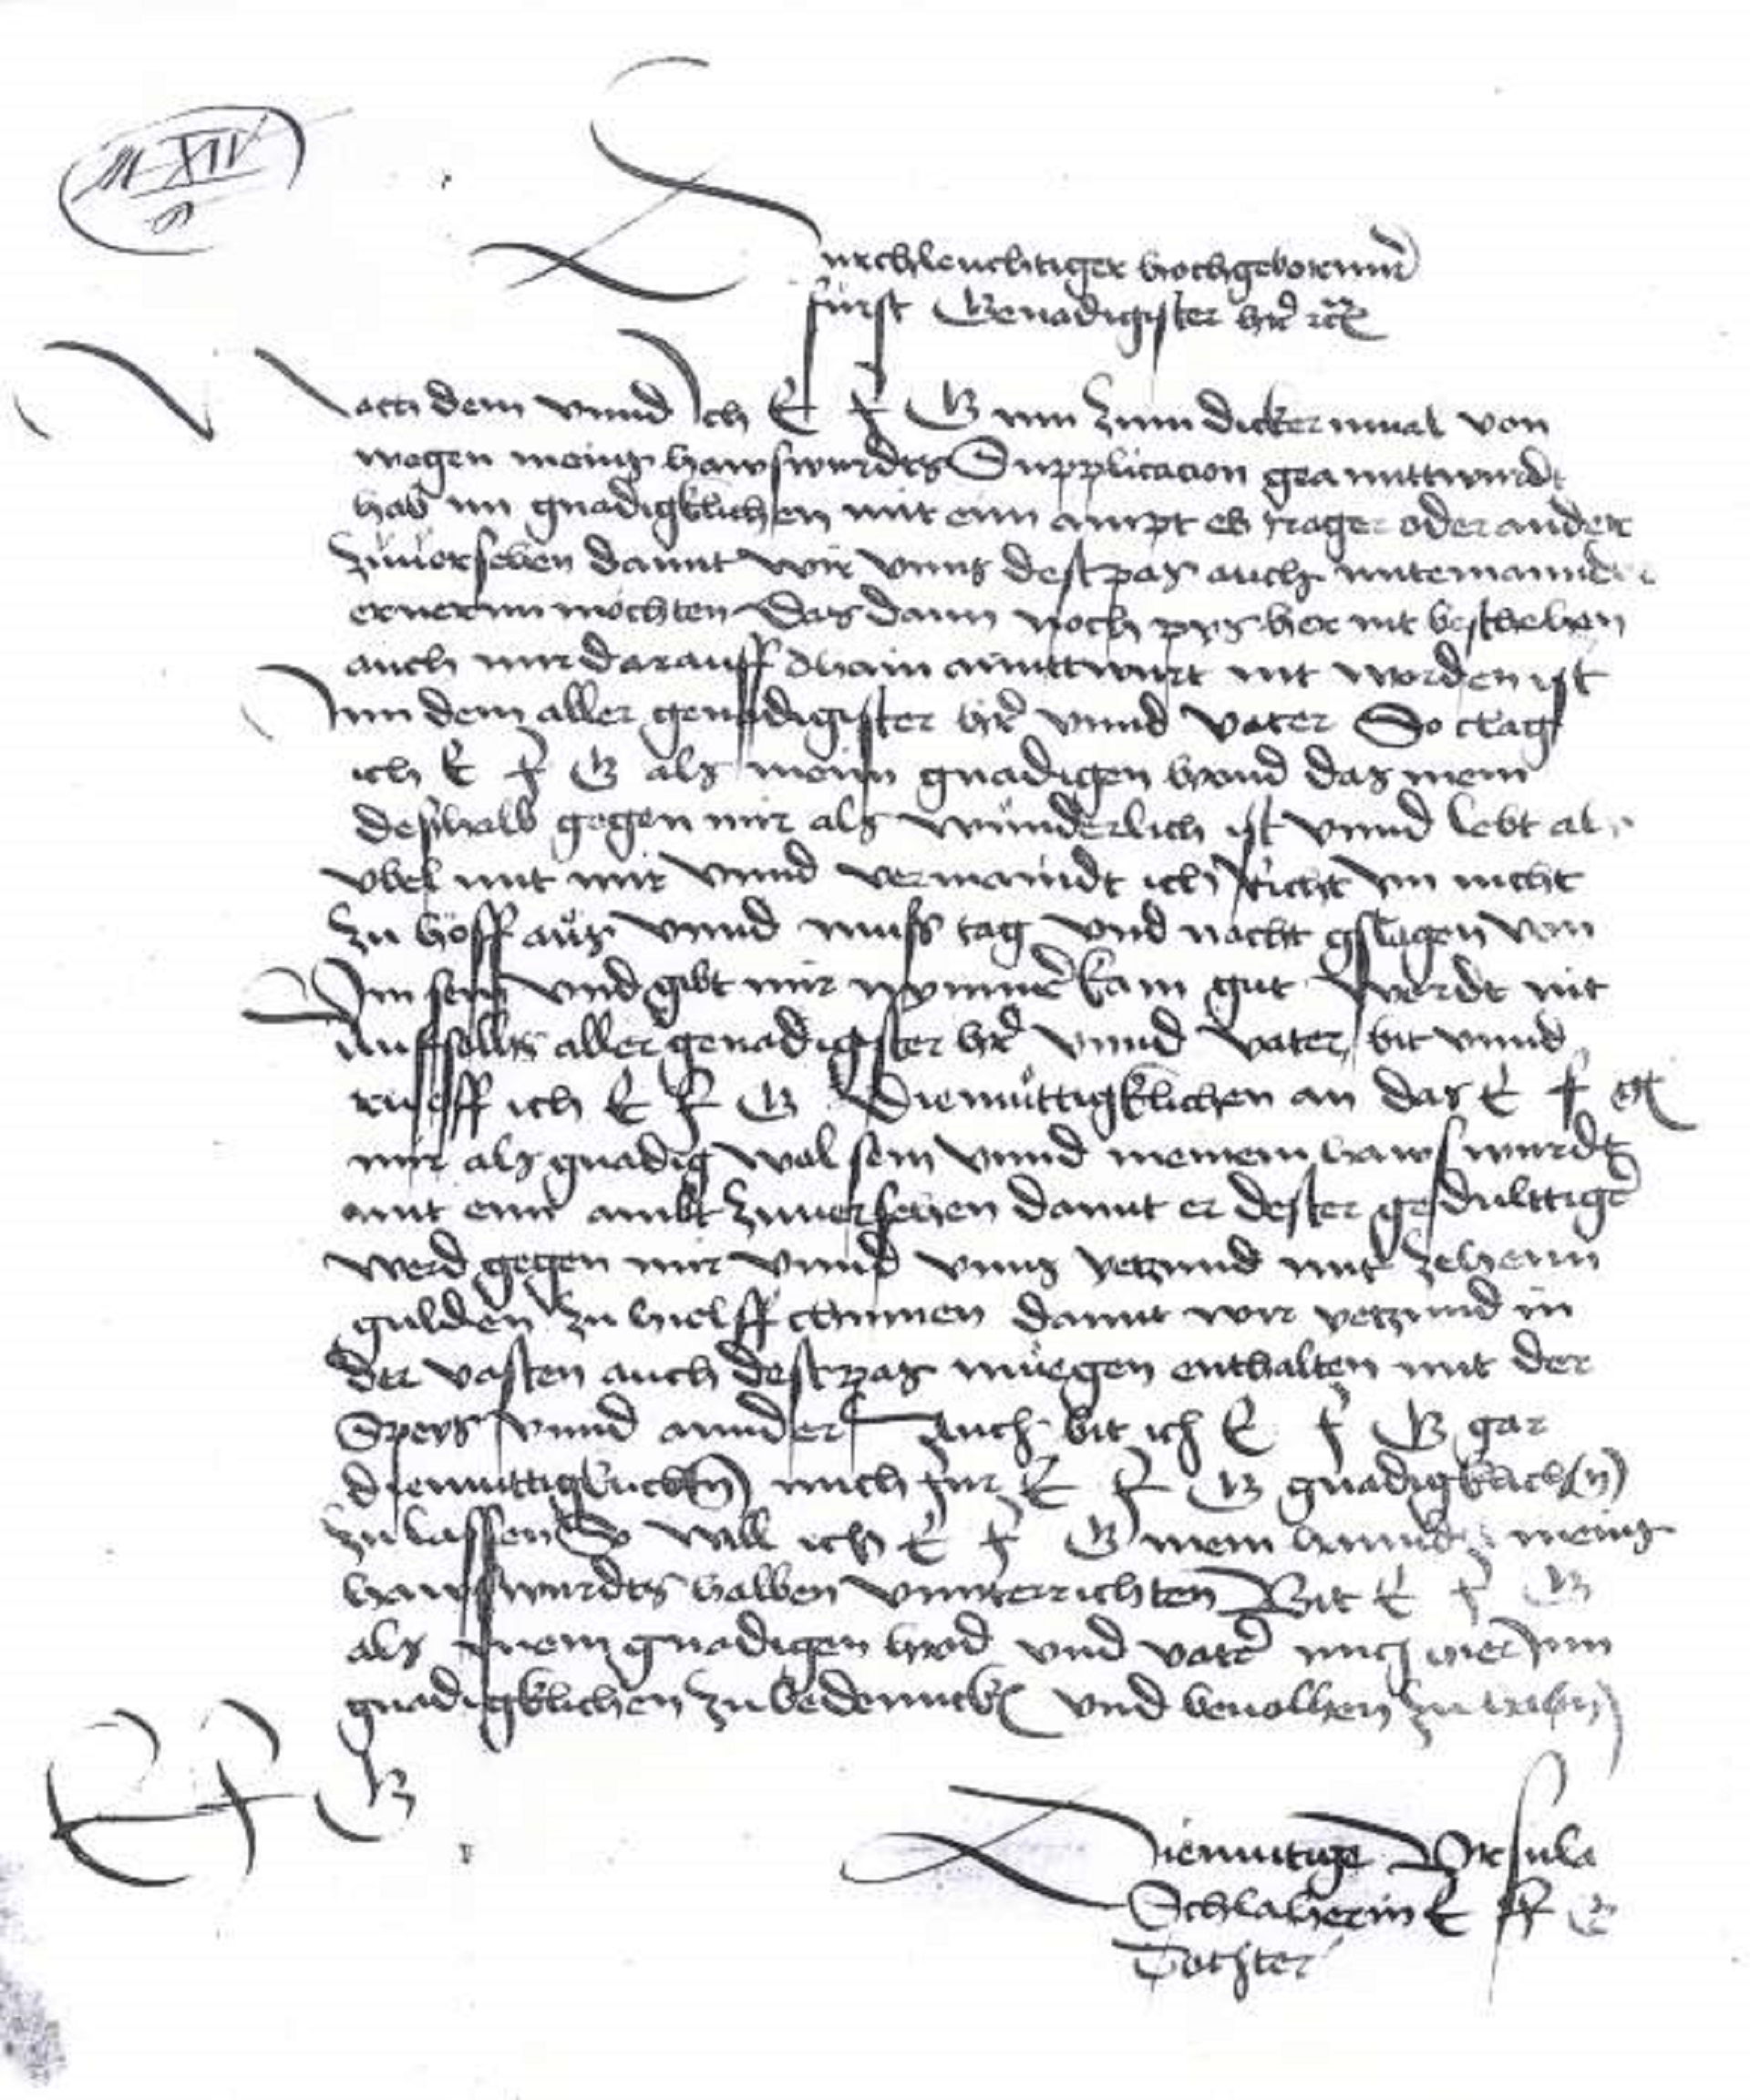 M XIV
9
Durchleuchtiger hochgebornner
fürst Genadigister hr rc
Nach dem vnnd Ich E F G nun zum dicker mual von
wegen meins hawswurdts Supplicacion geannttwurdt
hab im gnadigklichen mit einn ampt eb trager oder ander
zuuersehen damit wir vnns dest pas auch miteinannder
ernerrn mochten Das dann noch pys her nit beschehen
auch mir darauff khain anntwurt nit worden ist
Inn dem aller genadigister hr vnnd vater So clag
ich E F G als meinn gnadigen hernd das mein
deshalb gegen mir als wünderlich ist vnnd lebt als
vbel mit mir vnnd vermaindt ich richt im nicht
zu hoff aus vnnd muss tag vnd nacht gslagen von
Im sein vnd gibt mir nymmer kain gut wordt nit
auff solhs aller genadigister hr vnnd vater bit vnnd
rueff ich E F G Diemuttigklichen an das E F G
mir als gnadig wol sein vnnd meinem hawswurdt
mit eim ambt zuuersehen damit er dester gedulttiger
werd gegen mir vnnd vnns yetzund mit zehenn
gulden zu hielff chumen damit wir yetzund in
der vasten auch dest pas muegen enthalten mit der
Speys vnnd annder Auch bit ich E F G gar
diemuttigklichen mich fur E F G gnadigklichen
zu lassen So will ich E F G mein meins
hawswurdts halben vnnterrichten Bit E F G
als mein gnadigen hernd vnd vater mich hier Inn
gnadigklichen zu bedennckh vnd beuolhen zu haben
E F G
Diemutige Vrsula
Schlaherin E F G
Tochter